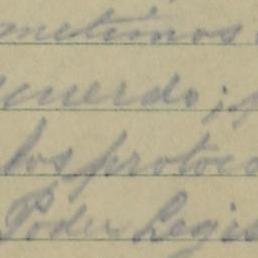 metimos
cuerdo;
los protoco
Poder Legis